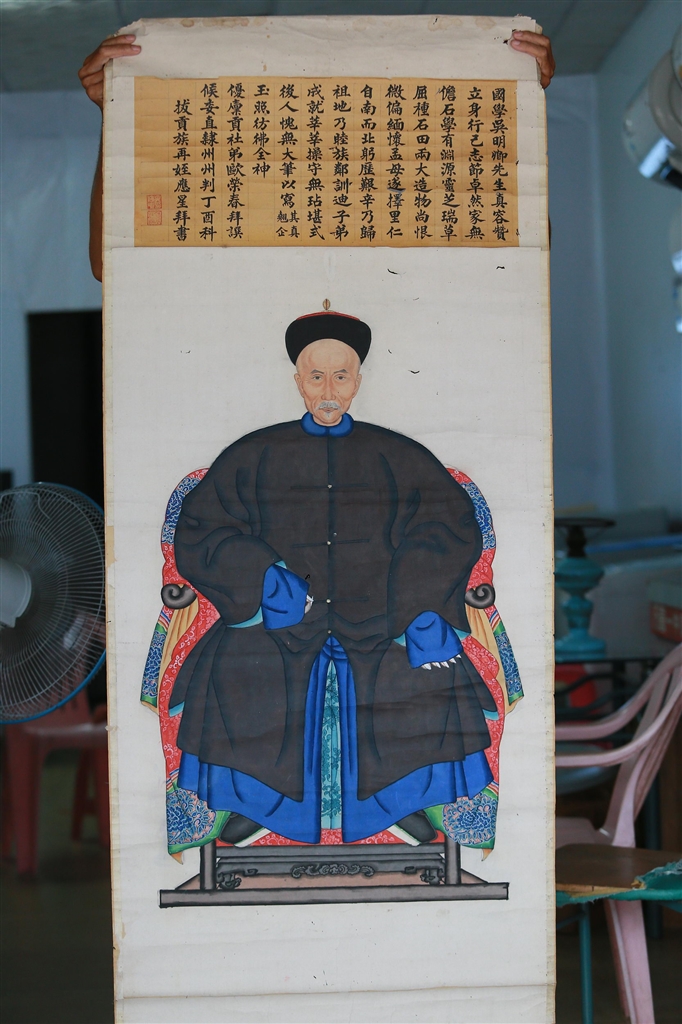 國學吳明卿先生真容贊
立身行己志節卓然家無
儋石學有淵源靈芝瑞草
屈種石田兩大造物尚恨
微偏緬懷孟母遂擇里仁
自南而北躬歷艱辛乃歸
祖地乃睦族鄰訓迪子弟
成就莘莘操守無玷堪式
後人愧無大筆以寫其真翹企
玉照彷彿全神
優廩貢社弟歐榮春拜誤
候委直隸州州判丁酉科
拔貢族再姪應星拜書